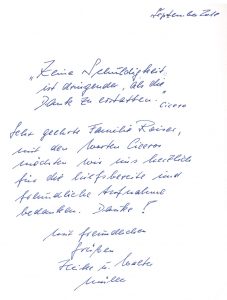 September 2010
„Keine Schuldigkeit
ist dringender, als die
Dank zu erstatten."
Cicero
Sehr geehrte Familie Kaiser,
mit den Worten Ciceros
möchten wir uns herzlich
für die hilfsbereite und
freundliche Aufnahme
bedanken. Danke!
Mit freundlichen
Grüßen
u. Walter
Müller